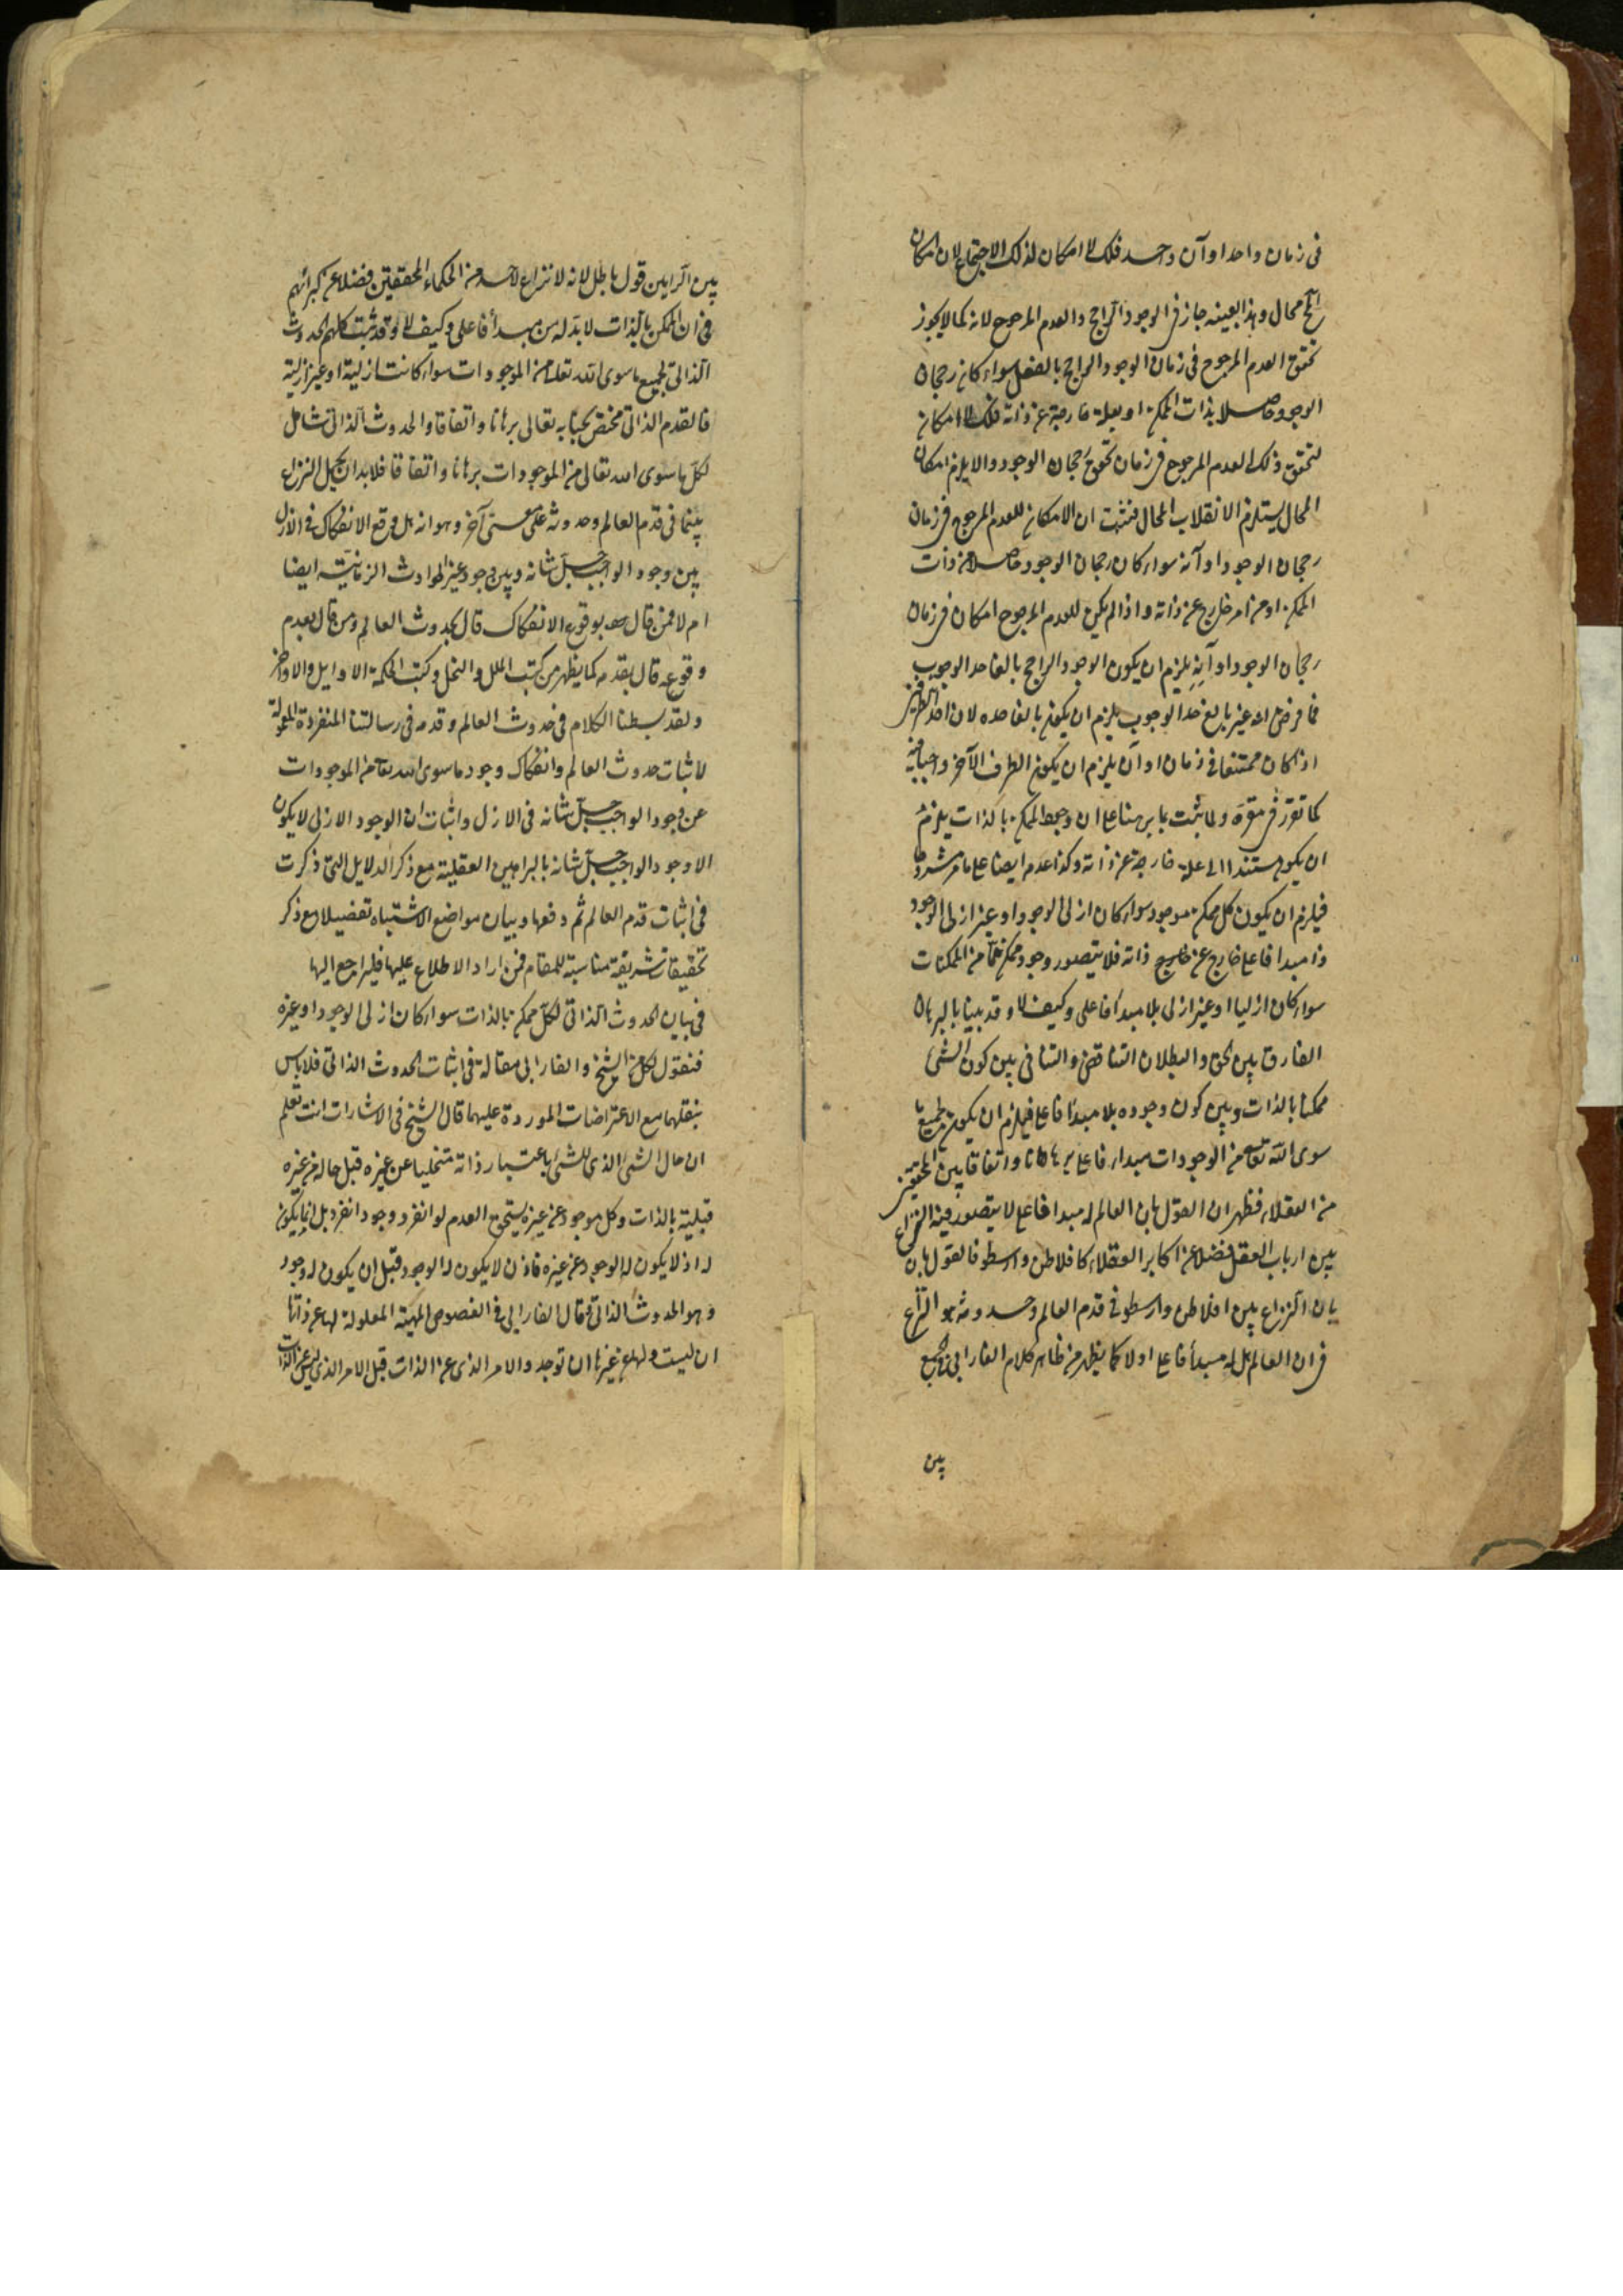 فى زمان واحد او آن واحد فلك لا امكان لذلك الاجتماع لان امكان
المح محال وبهذا بعينه جاز فى الوجود الراجح والعدم المرجوح لانه كما لا يجوز
تحقق العدم المرجوح فى زمان الوجود الراجح بالفعل سواء كان رجحان
الوجود حاصلا بذات الممكن او بعلة خارجة عن ذاته فلك لا امكان
لتحقق ذلك العدم المرجوح فى زمان تحقق رجحان الوجود والا يلزم امكان
المحال يستلزم الانقلاب المحال فثبت ان لا امكان للعدم المرجوح فى زمان
رجحان الوجود او آنه سواء كان رجحان الوجود حاصلا من ذات
الممكن او من امر خارج عن ذاته واذا لم يكن للعدم المرجوح امكان فى زمان
رجحان الوجود او آنه يلزم ان يكون الوجود الراجح بالغا حد الوجوب
فما فرض انه غير بالغ حد الوجوب يلزم ان يكون بالغا حده لان احد الطرفين
اذا كان ممتنعا فى زمان او آن يلزم ان يكون الطرف الآخر واجبا فيه
كما تقرر فى مقره ولما ثبت بما برهنا على ان وجود الممكن بالذات يلزم
ان يكون مستندا الى علة خارجة عن ذاته وكذا عدمه ايضا على ما مر مشروحا
فيلزم ان يكون كل ممكن موجود سواء كان ازلى الوجود او غير ازلى الوجود
ذا مبدا فاعلى خارج عن ذاته فلا يتصور وجود ممكن ما من الممكنات
سواء كان ازليا او غير ازلى بلا مبدا فاعلى وكيف لا وقد بينا بالبرهان
الفارق بين الحق والبطلان التناقض والتنافى بين كون الشئ
ممكنا بالذات وبين كون وجوده بلا مبدا فاعلى فيلزم ان يكون لجميع ما
سوى الله تعالى من الموجودات مبداء فاعلى برهانا واتفاقا بين المحققين
من العقلاء فظهر ان القول بان العالم له مبدا فاعلى لا يتصور فيه النزاع
بين ارباب العقل فضلا عن اكابر العقلاء كافلاطن وارسطو فالقول بان
بان النزاع بين افلاطن وارسطو فى قدم العالم وحدوثه هو النزاع
فى ان العالم هل له مبدأ فاعلى اولا كما يظهر من ظاهر كلام الفارابى فى الجمع
بين
بين الرايين قول باطل لانه لا نزاع لاحد من الحكماء المحققين فضلا عن كبرائهم
فى ان الممكن بالذات لا بد له من مبدأ فاعلى وكيف لا وقد ثبت كلهم الحدوث
الذاتى لجميع ما سوى الله تعالى من الموجودات سواء كانت ازلية او غير ازلية
فالقدم الذاتى مختص بجنابه تعالى برهانا واتفاقا والحدوث الذاتى شامل
لكل ما سوى الله تعالى من الموجودات برهانا واتفاقا فلا بد ان يحمل النزاع
بينهما فى قدم العالم وحدوثه على معنى آخر وهو انه هل وقع الانفكاك فى الازل
بين وجود الواجب جل شانه وبين وجود غير الحوادث الزمانية ايضا
ام لا فمن قال بوقوع الانفكاك قال بحدوث العالم ومن قال بعدم
وقوعه قال بقدمه كما يظهر من كتب الملل والنحل وكتب الحكمة الاوايل والاواخر
ولقد بسطنا الكلام فى حدوث العالم وقدمه فى رسالتنا المنفردة المعمولة
لاثبات حدوث العالم وانفكاك وجود ما سوى الله تعالى من الموجودات
عن وجود الواجب جل شانه فى الازل واثبات ان الوجود الازلى لا يكون
الا وجود الواجب جل شانه بالبراهين العقلية مع ذكر الدلايل التى ذكرت
فى اثبات قدم العالم ثم دفعها وبيان مواضع الاشتباه تفصيلا مع ذكر
تحقيقات شريفة مناسبة للمقام فمن اراد الاطلاع عليها فليراجع اليها
فى بيان الحدوث الذاتى لكل ممكن بالذات سواء كان ازلى الوجود او غيره
فنقول لكل من الشيخ والفارابى مقالة فى اثبات الحدوث الذاتى فلا باس
بنقلهما مع الاعتراضات الموردة عليهما قال الشيخ فى الاشارات انت تعلم
ان حال الشئ الذى للشئ باعتبار ذاته متخليا عن غيره قبل حاله من غيره
قبلية بالذات وكل موجود عن غيره يستحق العدم لو انفرد وجود انفرد بل انما يكون
له اذ لا يكون له الوجود عن غيره فاذن لا يكون له الوجود قبل ان يكون له وجود
وهو الحدوث الذاتى وقال الفارابى فى الفصوص المهية المعلولة لها عن ذاتها
ان ليست ولها عن غيرها ان توجد والامر الذى عن الذات قبل الامر الذى ليس عن الذات